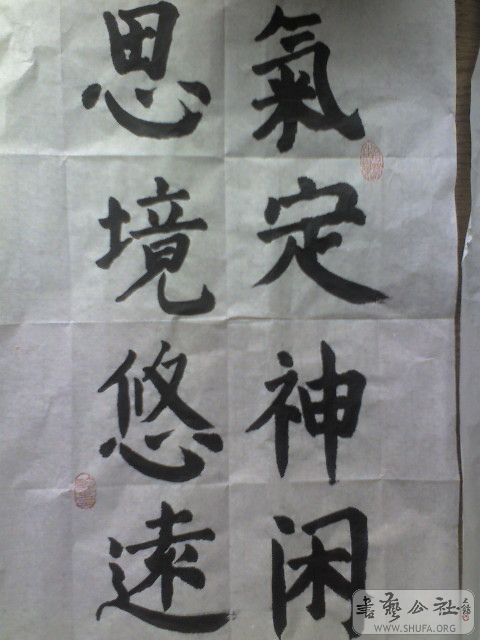 氣定神闲
思境悠遠
書藝公社
WWW.SHUFA.ORG